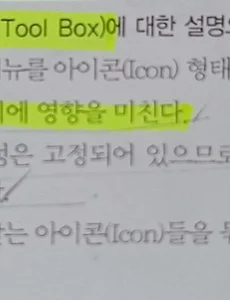 Tool Box)에 대한 설명으
뉴를 아이콘(Icon) 형태
에 영향을 미친다.
은 고정되어 있으므로
는 아이콘(Icon)들을